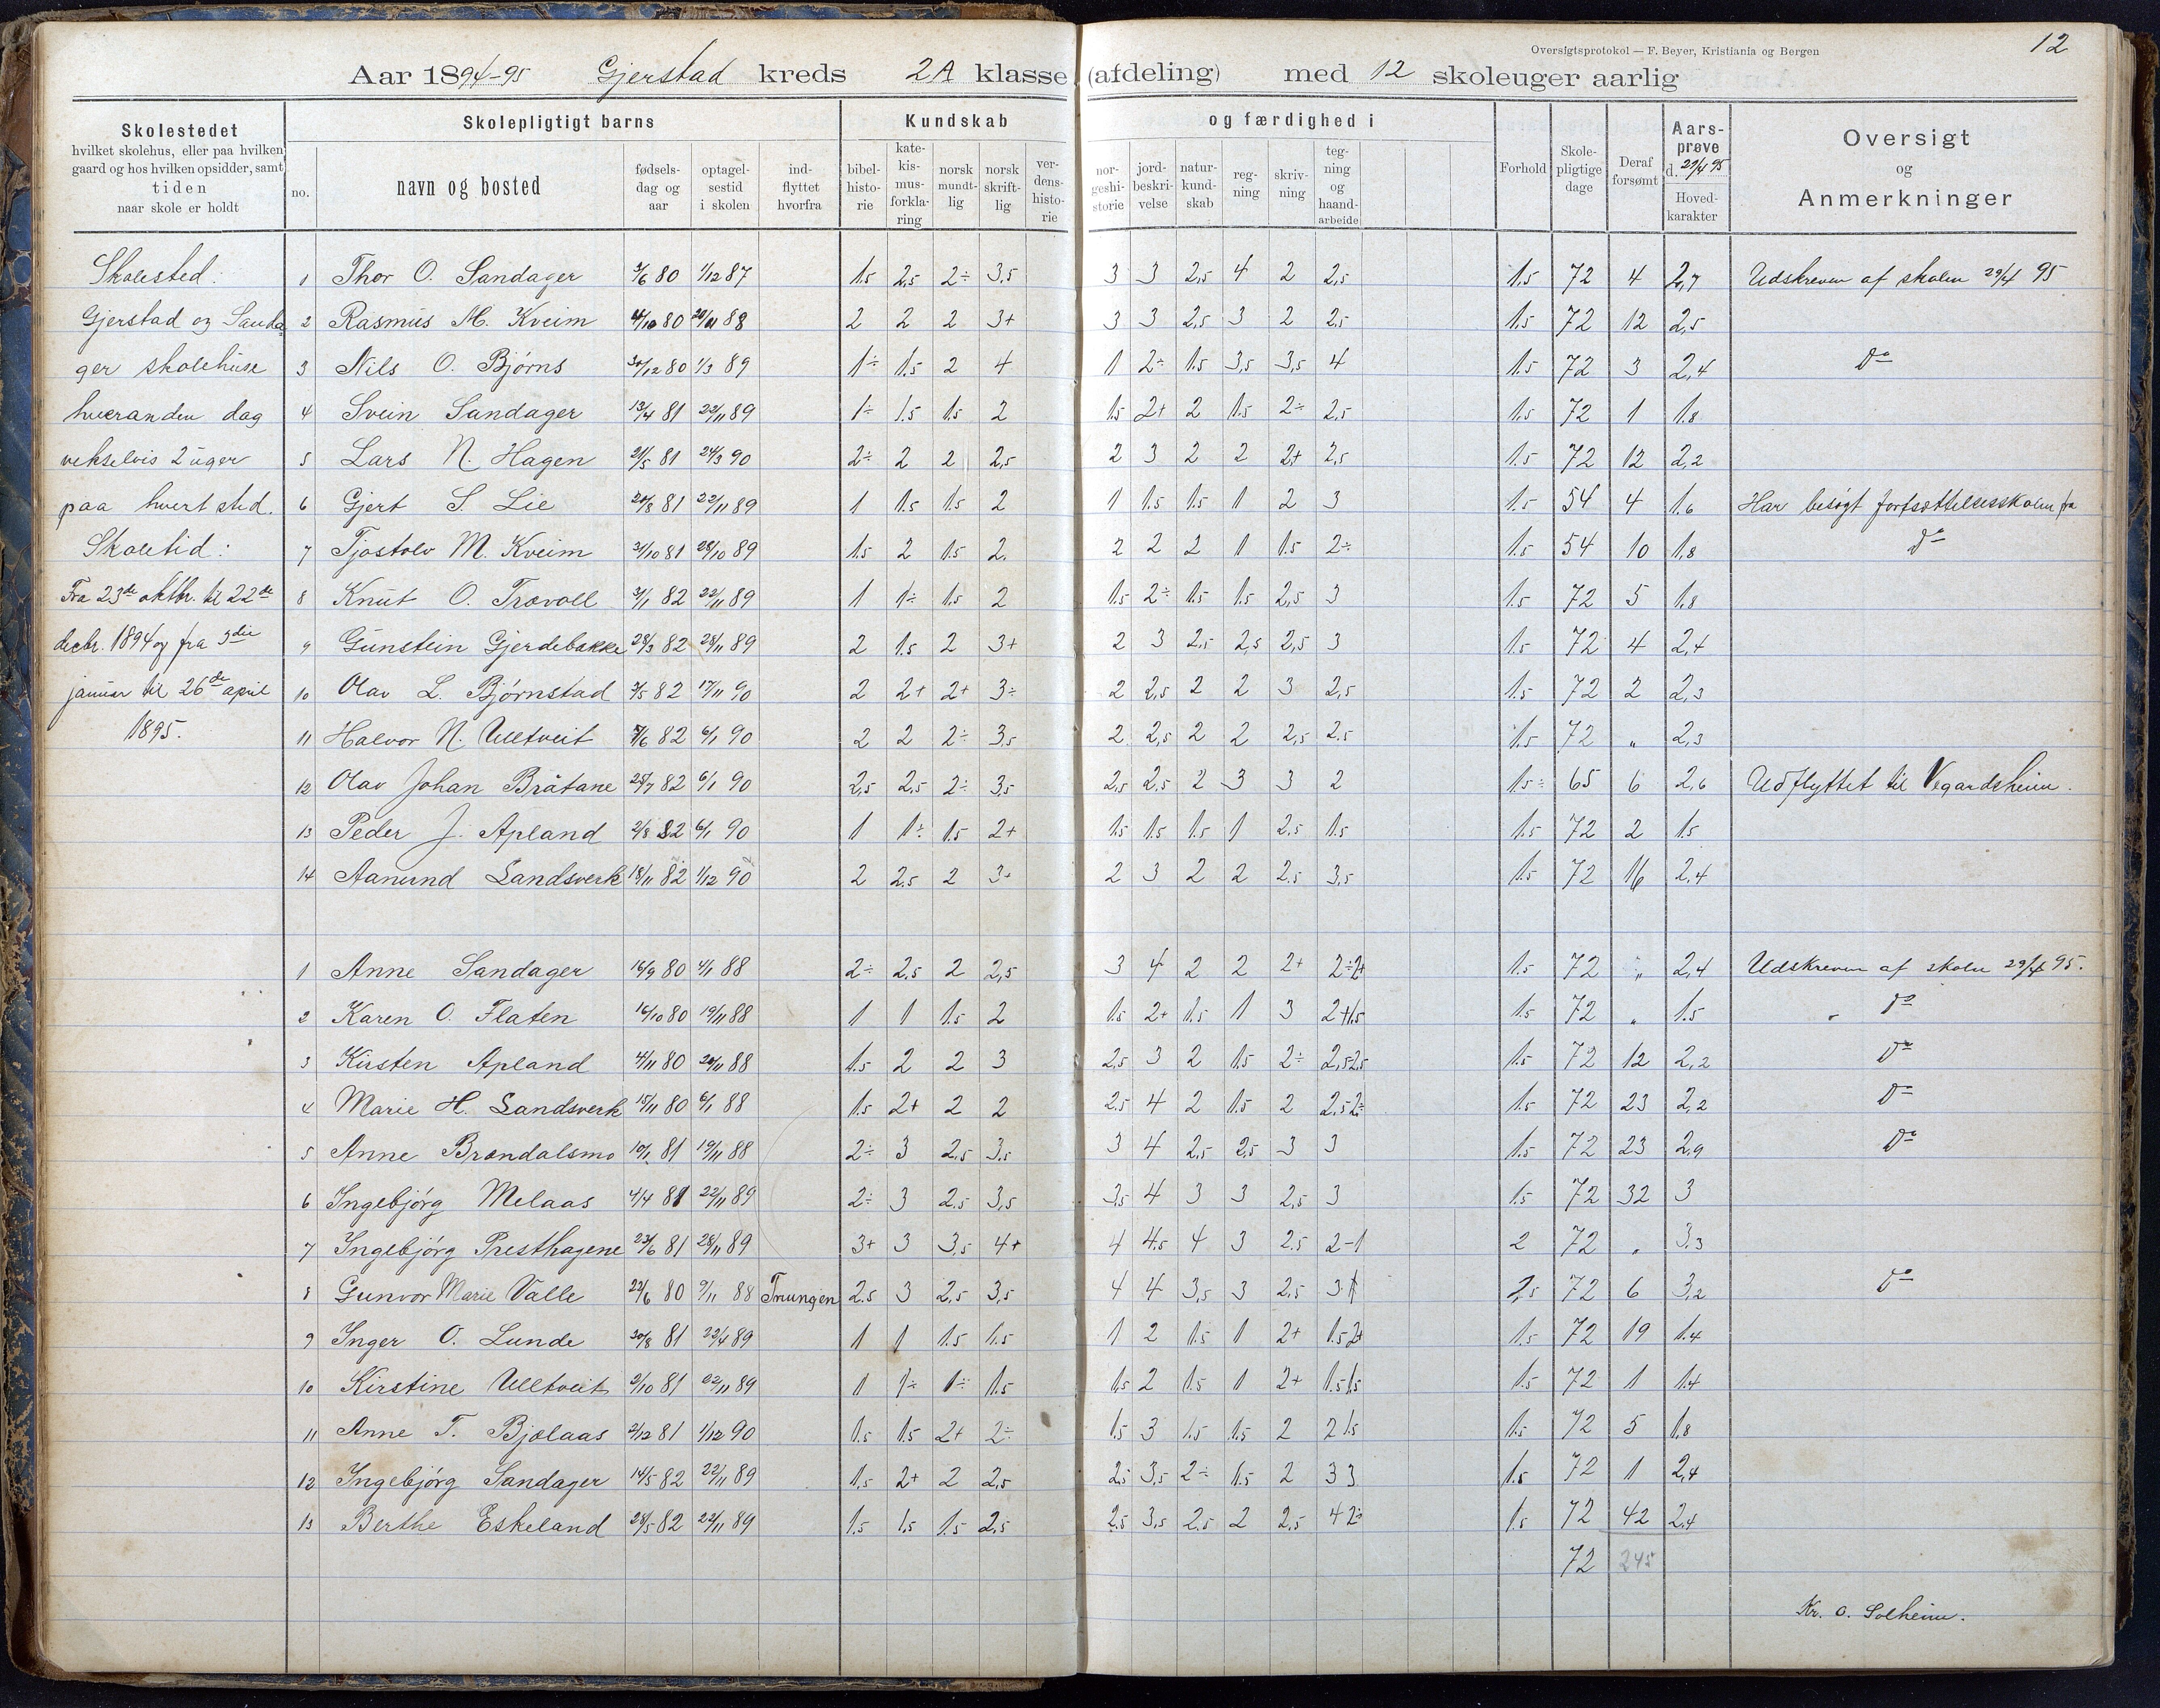 Oversigtsprotokol — F. Beyer, Kristiania og Bergen
12
Aar 1894-95 Gjerstad kreds 2A klasse (afdeling) med 12 skoleuger aarlig
Skolestedet
hvilket skolehus, eller paa hvilken
gaard og hos hvilken opsidder, samt
tiden
naar skole er holdt
Skolepligtigt barns
no.
navn og bosted
fødsels-
dag og
aar
optagel-
sestid
i skolen
ind-
flyttet
hvorfra
Kundskab og færdighed i
bibel-
histo-
rie
kate-
kis-
mus-
forkla-
ring
norsk
mundt-
lig
norsk
skrift-
lig
ver-
dens-
histo-
rie
nor-
geshi-
storie
jord-
beskri-
velse
natur-
kund-
skab
reg-
ning
skriv-
ning
teg-
ning
og
haand-
arbeide
Forhold
Skole-
pligtige
dage
Deraf
forsømt
Aars-
prøve
d. 29/4 95
Hoved-
karakter
Oversigt
og
Anmerkninger
Skolested:
Gjerstad og Sanda-
ger skolehuse
hveranden dag
vekselvis 2 uger
paa hvert sted.
Skoletid:
Fra 23de oktbr. til 22de
decbr. 1894 og fra 3die
januar til 26de april
1895.
1 Thor O. Sandager 3/6 80 1/12 87 1.5 2,5 2÷ 3,5 3 3 2,5 4 2 2,5 1.5 72 4 2,7 Udskreven af skolen 29/4 95
2 Rasmus M. Kveim 4/10 80 20/11 88 2 2 2 3+ 3 3 2,5 3 2 2,5 1.5 72 12 2,5
3 Nils O. Bjørns 30/12 80 1/3 89 1÷ 1.5 2 4 1 2÷ 1.5 3,5 3,5 4 1.5 72 3 2,4 do
4 Svein Sandager 13/4 81 22/11 89 1÷ 1.5 1.5 2 1.5 2+ 2 1.5 2÷ 2,5 1.5 72 1 1.8
5 Lars N. Hagen 21/5 81 24/3 90 2÷ 2 2 2,5 2 3 2 2 2+ 2,5 1.5 72 12 2,2
6 Gjert S. Lie 20/8 81 22/11 89 1 1.5 1.5 2 1 1.5 1.5 1 2 3 1.5 54 4 1.6 Har besøgt fortsættelsesskolen fra
7 Tjostolv M. Kveim 31/10 81 28/10 89 1.5 2 1.5 2. 2 2 2 1 1.5 2÷ 1.5 54 10 1,8 do
8 Knut O. Trovoll 3/1 82 22/11 89 1 1÷ 1.5 2 1.5 2÷ 1.5 1.5 2,5 3 1.5 72 5 1,8
9 Gunstein Gjerdebakke 28/3 82 28/11 89 2 1.5 2 3+ 2 3 2,5 2,5 2,5 3 1.5 72 4 2,4
10 Olav L. Bjørnstad 3/5 82 17/11 90 2 2+ 2+ 3÷ 2 2,5 2 2 3 2,5 1.5 72 2 2,3
11 Halvor N. Ulltveit 7/6 82 6/1 90 2 2 2÷ 3,5 2 2,5 2 2 2,5 2.5 1.5 72 " 2,3
12 Olav Johan Bråtane 25/7 82 6/1 90 2,5 2,5 2÷ 3,5 2,5 2,5 2 3 3 2 1.5÷ 65 6 2,6 Udflyttet til Vegardsheim.
13 Peder J. Apland 2/8 82 6/1 90 1 1÷ 1.5 2+ 1.5 1.5 1.5 1 2.5 1.5 1.5 72 2 1.5
14 Aanund Landsverk 18/11 82 1/12 90 2 2.5 2 3+ 2 3 2 2 2.5 3,5 1.5 72 16 2.4
1 Anne Sandager 16/9 80 4/1 88 2÷ 2.5 2 2,5 3 4 2 2 2+ 2÷2+ 1.5 72 " 2,4 Udskreven af skolen 29/4 95.
2 Karen O. Flaten 16/10 80 19/11 88 1 1 1.5 2 1.5 2+ 1.5 1 3 2+1.5 1.5 72 " 1.5 do
3 Kirsten Apland 4/11 80 20/11 88 1.5 2 2 3 2,5 3 2 1.5 2÷ 2,5 2,5 1.5 72 12 2,2 do
4 Marie H. Landsverk 15/11 80 6/1 88 1.5 2+ 2 2 2.5 4 2 1.5 2 2.5 2÷ 1.5 72 23 2,2 do
5 Anne Brændalsmo 10/1 81 19/11 88 2÷ 3 2.5 3.5 3 4 2.5 2,5 3 3 1.5 72 23 2.9 do
6 Ingebjørg Melaas 4/4 81 22/11 89 2÷ 3 2.5 3,5 3,5 4 3 3 2,5 3 1.5 72 32 3
7 Ingebjørg Presthagene 23/6 81 28/11 89 3+ 3 3,5 4+ 4 4.5 4 3 2.5 2-1 2 72 " 3.3
8 Gunvor Marie Valle 22/6 80 9/11 88 Trungen 2.5 3 2,5 3,5 4 4 3,5 3 2.5 3 2,5 72 6 3,2 do
9 Inger O. Lunde 30/8 81 23/4 89 1 1 1.5 1.5 1 2 1.5 1 2+ 1.5 2+ 1.5 72 19 1.4
10 Kirstine Ulltveit 9/10 81 22/11 89 1 1÷ 1÷ 1.5 1,5 2 1.5 1 2+ 1.5 1.5 1.5 72 1 1.4
11 Anne T. Bjølaas 2/12 81 1/12 90 1.5 1.5 2+ 2÷ 1.5 3 1.5 1.5 2 2 1.5 1.5 72 5 1,8
12 Ingebjørg Sandager 14/5 82 22/11 89 1,5 2+ 2 2,5 2.5 3,5 2÷ 1.5 2 3 3 1.5 72 1 2,4
13 Berthe Eskeland 28/5 82 22/11 89 1.5 1,5 1.5 2,5 2.5 3,5 2.5 2 2,5 4 2÷ 1.5 72 42 2,4
72 245
Kr. O. Solheim.